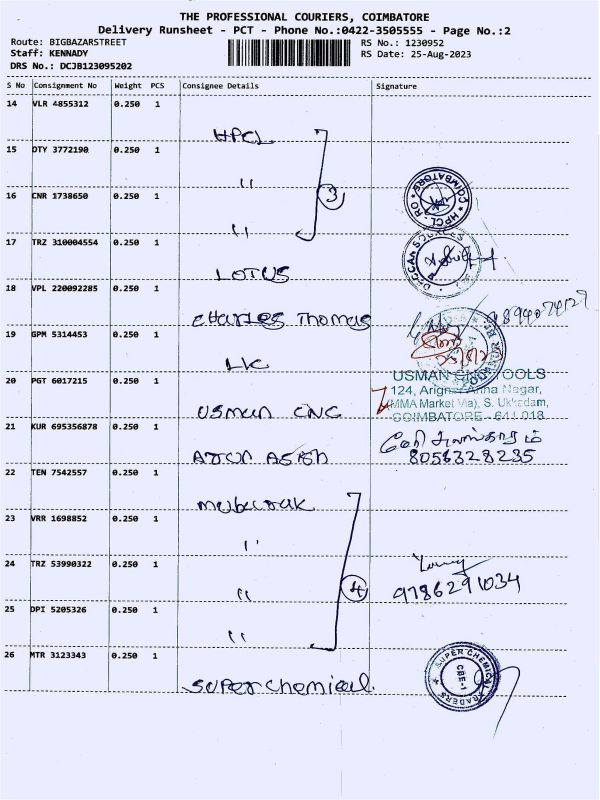 THE PROFESSIONAL COURIERS, COIMBATORE
Delivery Runsheet - PCT - Phone No.:0422-3505555 - Page No.:2
Route: BIGBAZARSTREET RS No.: 1230952
Staff: KENNADY RS Date: 25-Aug-2023
DRS No.: DCJB123095202
S No Consignment No Weight PCS Consignee Details Signature
14 VLR 4855312 0.250 1 HPCL
15 DTY 3772190 0.250 1 "
16 CNR 1738650 0.250 1 " 3
COIMBATORE * HPCL. RO *
17 TRZ 310004554 0.250 1 LOTUS
DECCAN SOURCES
18 VPL 220092285 0.250 1 Charles Thomas
19 GPM 5314453 0.250 1 LIC
20 PGT 6017215 0.250 1 USMAN CNC
USMAN CNC TOOLS
124, Arignar Anna Nagar,
(MMA Market Via), S. Ukkadam,
COIMBATORE - 641 018
21 KUR 695356878 0.250 1
8056328235
22 TEN 7542557 0.250 1 Mubarak
23 VRR 1698852 0.250 1 "
24 TRZ 53990322 0.250 1 " 4
9786291034
25 DPI 5205326 0.250 1 "
26 MTR 3123343 0.250 1 Super chemical
SUPER CHEMICAL TRADERS
CBE-1